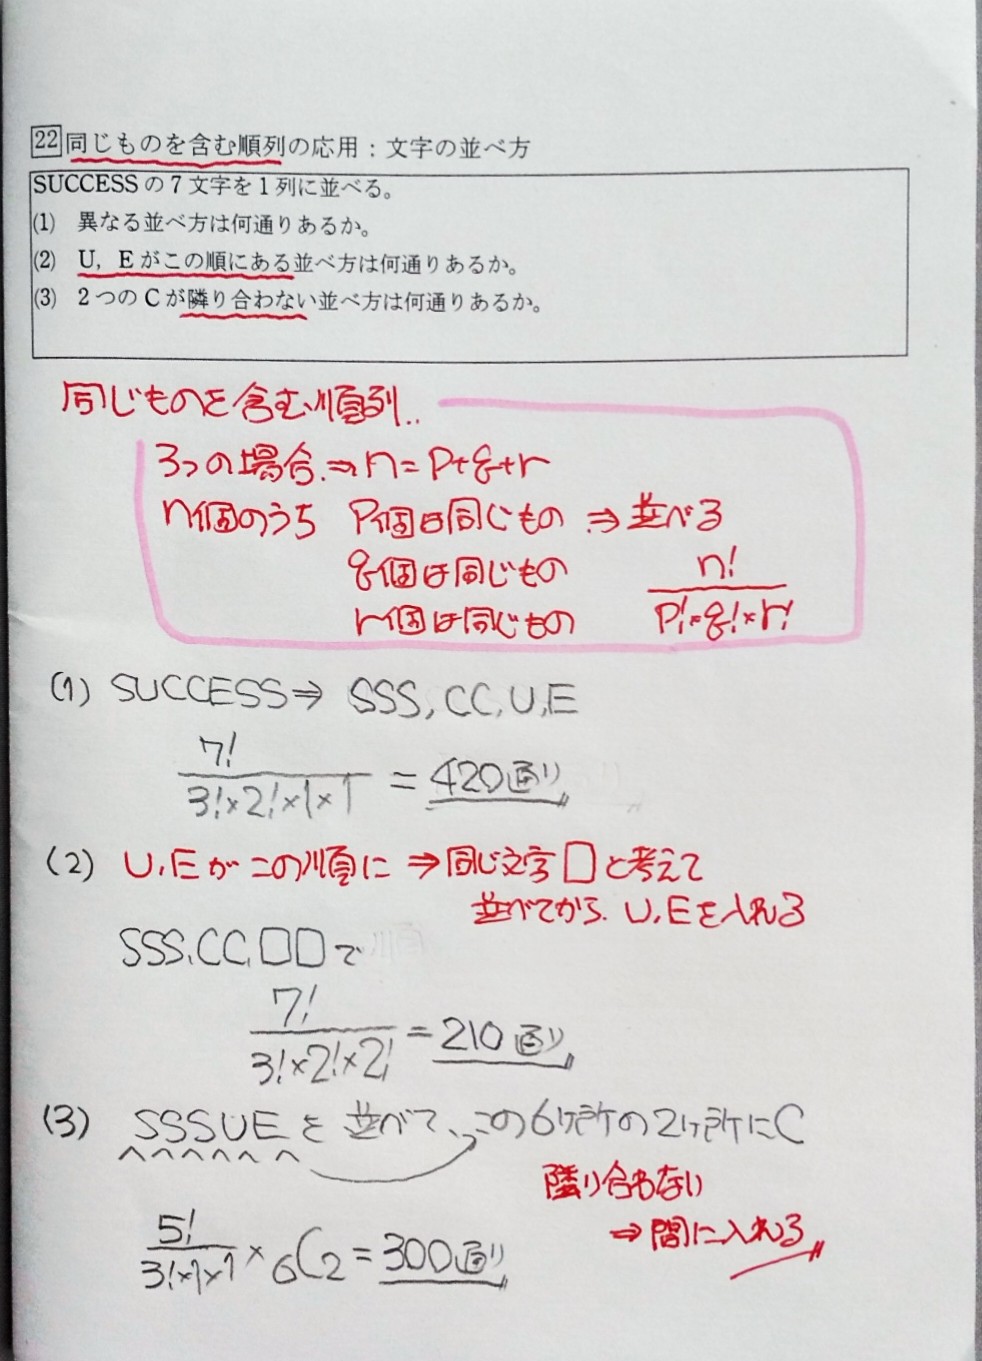 22 同じものを含む順列の応用：文字の並べ方
SUCCESSの7文字を1列に並べる。
(1) 異なる並べ方は何通りあるか。
(2) U, Eがこの順にある並べ方は何通りあるか。
(3) 2つのCが隣り合わない並べ方は何通りあるか。
同じものを含む順列‥
3つの場合.⇒n=p+q+r
n個のうち p個は同じもの ⇒並べる
q個は同じもの n!/(p!×q!×r!)
r個は同じもの
(1) SUCCESS⇒ SSS, CC, U, E
7!/(3!×2!×1×1) = 420通り
(2) U, Eがこの順に ⇒同じ文字□と考えて
並べてから. U, Eを入れる
SSS, CC, □□で
7!/(3!×2!×2!) = 210通り
(3) SSSUEを並べて、この6ヶ所の2ヶ所にC
^^^^^^
隣り合わない
⇒間に入れる
5!/(3!×1×1) × ₆C₂ = 300通り